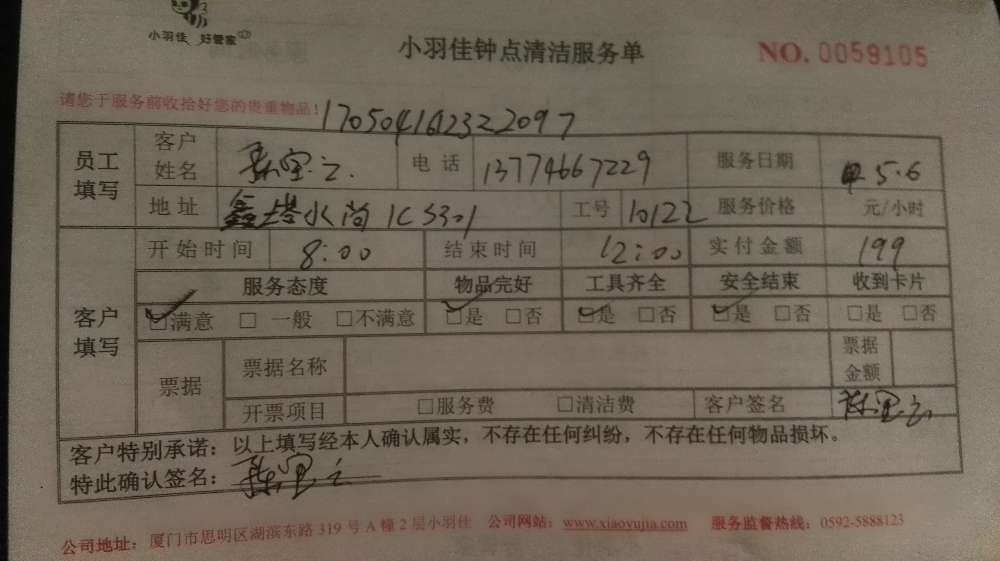 小羽佳 好管家
小羽佳钟点清洁服务单 NO. 0059105
请您于服务前收拾好您的贵重物品!
员工填写 客户姓名 电话 13774667229 服务日期 5.6
地址 水尚1C5301 工号 10122 服务价格 元/小时
客户填写 开始时间 8:00 结束时间 12:00 实付金额 199
服务态度 物品完好 工具齐全 安全结束 收到卡片
☑满意 □一般 □不满意 ☑是 □否 ☑是 □否 ☑是 □否 □是 □否
票据 票据名称 票据金额
开票项目 □服务费 □清洁费 客户签名
客户特别承诺:以上填写经本人确认属实,不存在任何纠纷,不存在任何物品损坏。
特此确认签名:
公司地址:厦门市思明区湖滨东路 319 号 A 幢 2 层小羽佳 公司网站:www.xiaoyujia.com 服务监督热线:0592-5888123